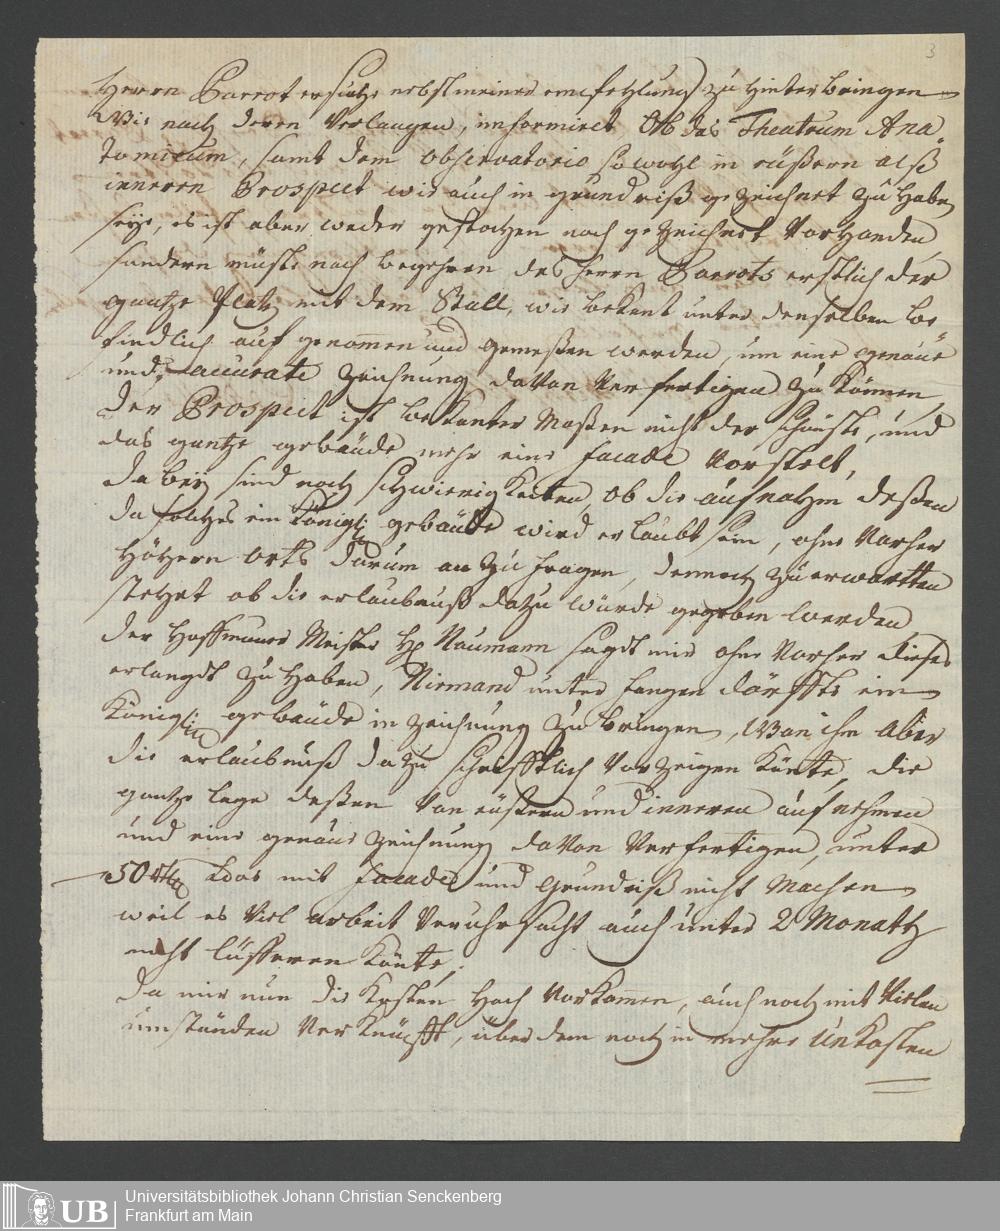 3
Herrn Parrot ersuche nebst meiner emfehlung zu hinterbringen
Wie nach deren Verlangen, informiret Ob das Theatrum Ana„
tomicum, samt dem Observatorio sowohl in eüßern alß
inneren Prospect wie auch in grundriß gezeichnet zu haben
seye, es ist aber weder gestochen noch gezeichnet Vorhanden
sondern müste nach begehren des Herrn Parrots erstlich der
gantze Platz mit dem Stall, wie bekent unter denselben be„
findlich auf genommen und gemeßen werden, um eine genaue
und accurate zeichnung davon Verfertigen zu können,
Der Prospect ist bekanter Maßen nicht der schönste, und
das gantze gebäude mehr eine facade Vorstelt,
dabey sind noch schwierigkeiten, ob die aufnahm deßen
da solches ein Königl: gebäude wird erlaubt sein, ohne Vorher
höhern Orts darum an zu fragen, dennoch zu erwartten
stehet ob die erlaubnuß dazu würde gegeben werden
der Meister H: Naumann sagt mir ohne Vorher dieses
erlangdt zu haben, Niemand unter fangen dörffte ein
Königl: gebäude in zeichnung zu bringen, Wan ihm Aber
die erlaubnuß dazu schrifftlich Vorzeigen könte, die
gantze lage deßen Von eüßern und inneren auf nehmen
und eine genaue zeichnung davon Verfertigen, unter
50 rthl das mit facade und Grundriß nicht Machen
weil es Viel arbeit Veruhrsacht auch unter 2 Monath
nicht lüffern könte,
Da mir nun die Kosten hoch Vorkommen, auch noch mit Vielen
umständen Verknüpfft, über dem noch in mehre Unkosten
Universitätsbibliothek Johann Christian Senckenberg
UB
Frankfurt am Main